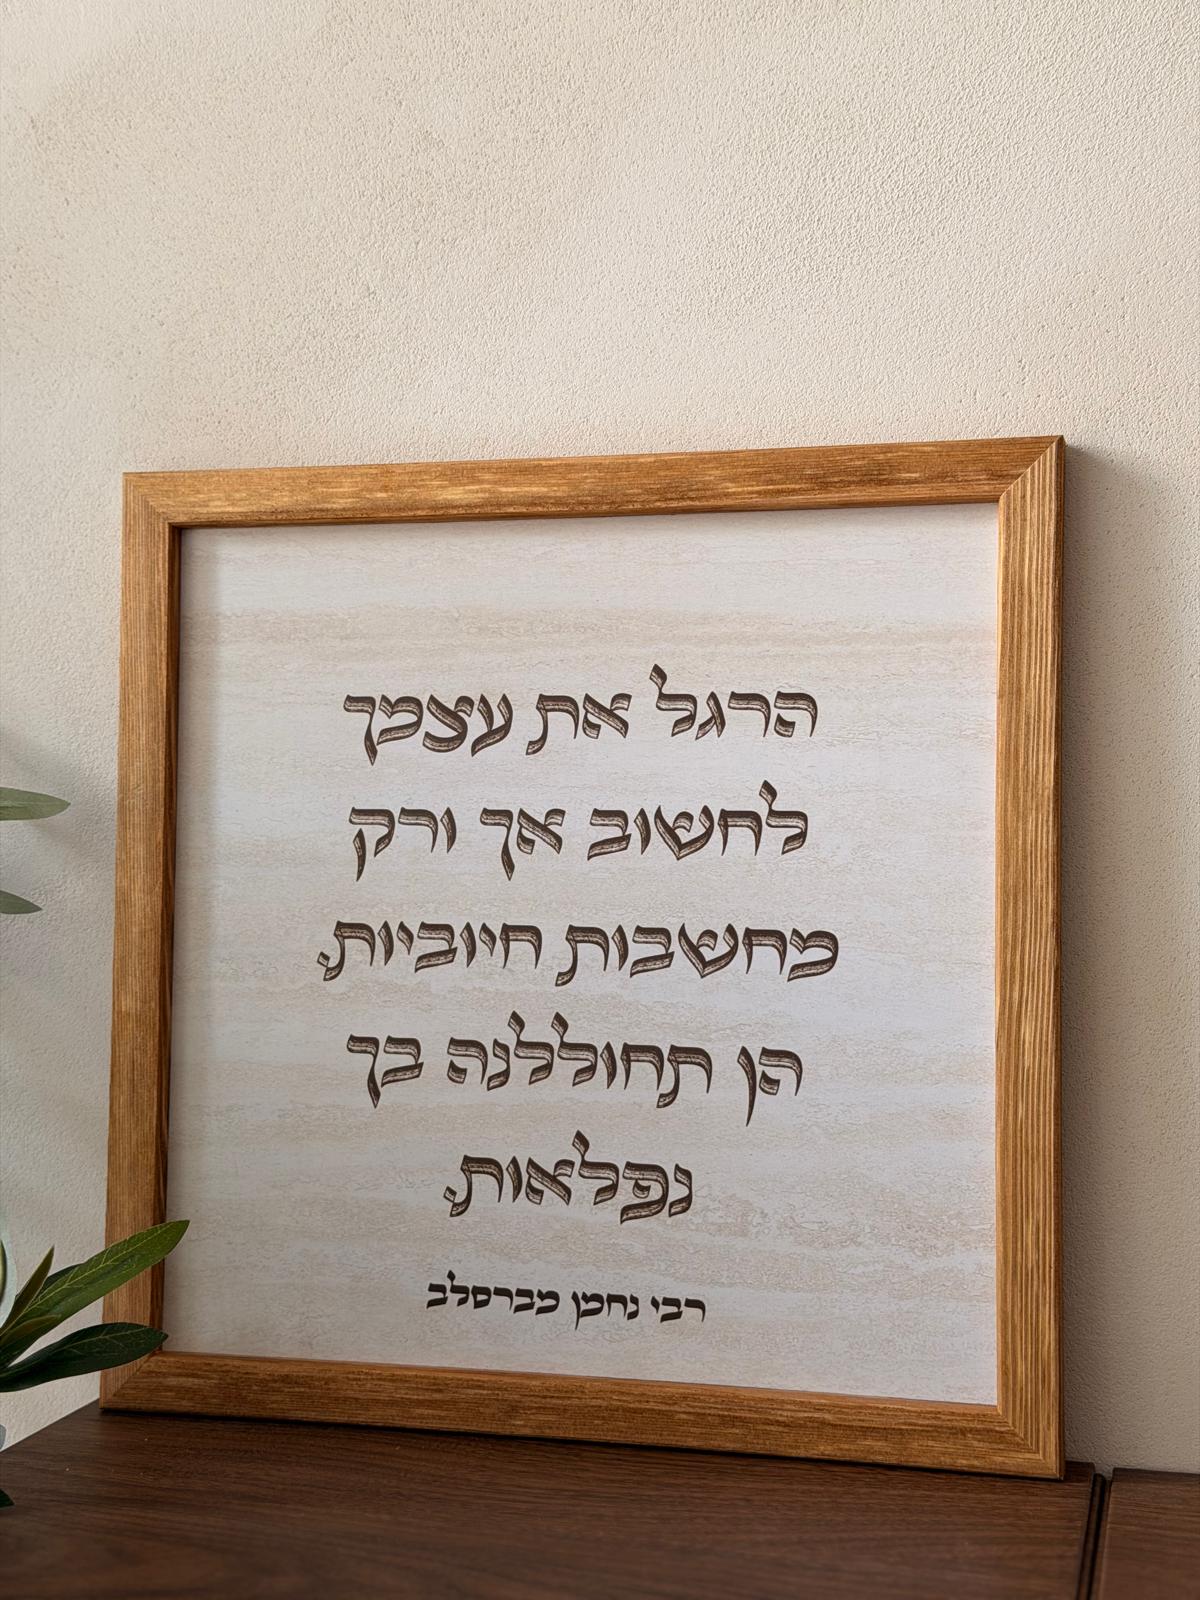 הרגל את עצמך
לחשוב אך ורק
מחשבות חיוביות.
הן תחוללנה בך
נפלאות.
רבי נחמן מברסלב